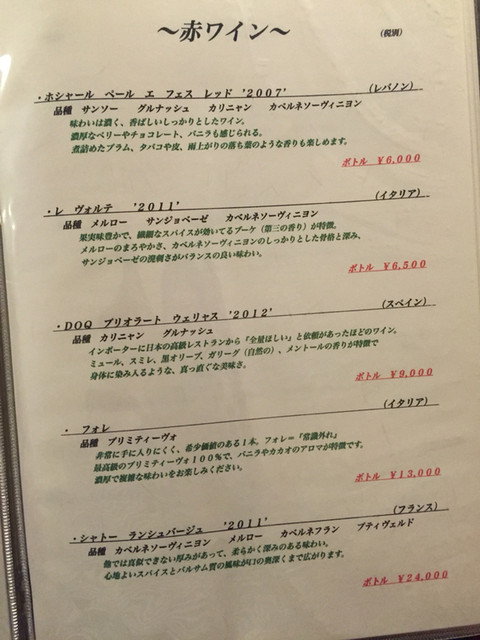 ～赤ワイン～
(税別)
・ホシャール ペール エ フェス レッド '2007' (レバノン)
品種 サンソー グルナッシュ カリニャン カベルネソーヴィニヨン
味わいは濃く、香ばしいしっかりとしたワイン。
濃厚なベリーやチョコレート、バニラも感じられる。
煮詰めたプラム、タバコや皮、雨上がりの落ち葉のような香りも楽しめます。
ボトル ￥6,000
・レ ヴォルテ '2011' (イタリア)
品種 メルロー サンジョベーゼ カベルネソーヴィニヨン
果実味豊かで、繊細なスパイスが効いてるブーケ（第三の香り）が特徴。
メルローのまろやかさ、カベルネソーヴィニヨンのしっかりとした骨格と深み、
サンジョベーゼの溌剌さがバランスの良い味わい。
ボトル ￥6,500
・DOQ プリオラート ウェリャス '2012' (スペイン)
品種 カリニャン グルナッシュ
インポーターに日本の高級レストランから『全量ほしい』と依頼があったほどのワイン。
ミュール、スミレ、黒オリーブ、ガリーグ（自然の）、メントールの香りが特徴で
身体に染み入るような、真っ直ぐな美味さ。
ボトル ￥9,000
・ フォレ (イタリア)
品種 プリミティーヴォ
非常に手に入りにくく、希少価値のある１本。フォレ＝『常識外れ』
最高級のプリミティーヴォ１００％で、バニラやカカオのアロマが特徴です。
濃厚で複雑な味わいをお楽しみください。
ボトル ￥13,000
・シャトー ランシュバージュ '2011' (フランス)
品種 カベルネソーヴィニヨン メルロー カベルネフラン プティヴェルド
他では真似できない厚みがあって、柔らかく深みのある味わい。
心地よいスパイスとバルサム質の風味が口の奥深くまで広がります。
ボトル ￥24,000